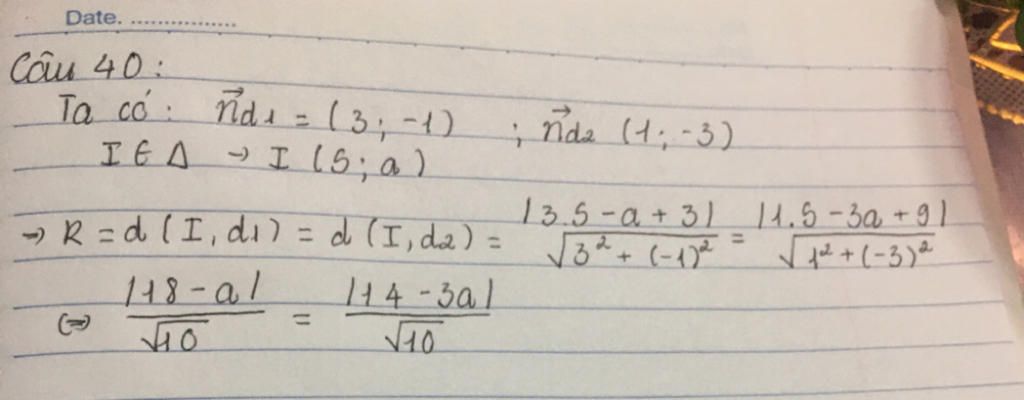 Date. ................
Câu 40:
Ta có: n⃗d1 = (3; -1) ; n⃗d2 (1; -3)
I ∈ Δ → I (5; a)
→ R = d (I, d1) = d (I, d2) = |3.5 - a + 3| / √(3² + (-1)²) = |1.5 - 3a + 9| / √(1² + (-3)²)
(=) |18 - a| / √10 = |14 - 3a| / √10